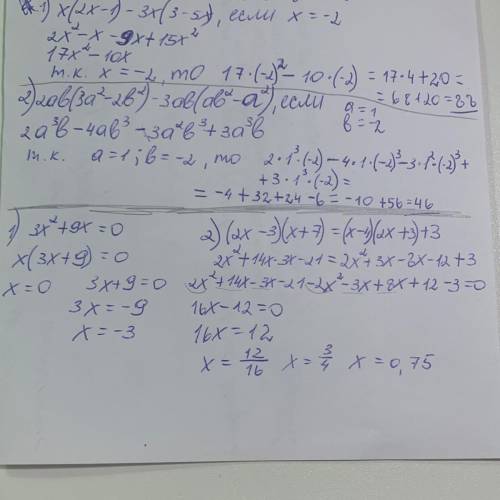 1) x(2x-1) - 3x(3-5x), если x = -2
2x² - x - 9x + 15x²
17x² - 10x
т.к. x = -2, то 17·(-2)² - 10·(-2) = 17·4 + 20 =
= 68 + 20 = 88
2) 2ab(3a² - 2b²) - 3ab(ab² - a²), если
a = 1
b = -2
2a³b - 4ab³ - 3a²b³ + 3a³b
т.к. a = 1; b = -2, то 2·1³·(-2) - 4·1·(-2)³ - 3·1²·(-2)³ +
+ 3·1³·(-2) =
= -4 + 32 + 24 - 6 = -10 + 56 = 46
1) 3x² + 9x = 0
x(3x + 9) = 0
x = 0 3x + 9 = 0
3x = -9
x = -3
2) (2x - 3)(x + 7) = (x - 4)(2x + 3) + 3
2x² + 14x - 3x - 21 = 2x² + 3x - 8x - 12 + 3
2x² + 14x - 3x - 21 - 2x² - 3x + 8x + 12 - 3 = 0
16x - 12 = 0
16x = 12
x = 12/16 x = 3/4 x = 0,75